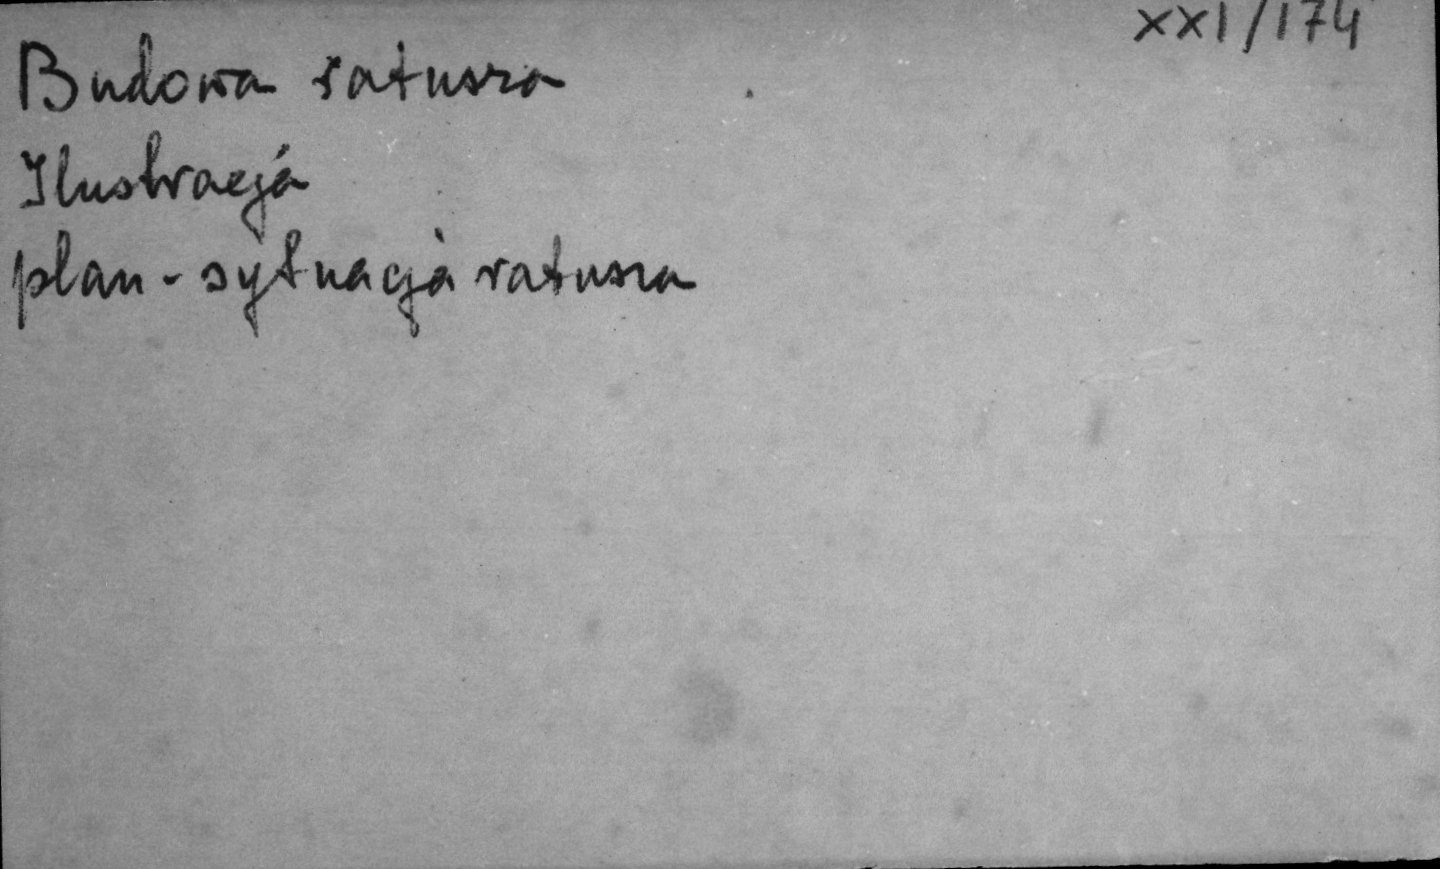 XXI/174
Budowa ratusza
Ilustracja
plan - sytuacja ratusza